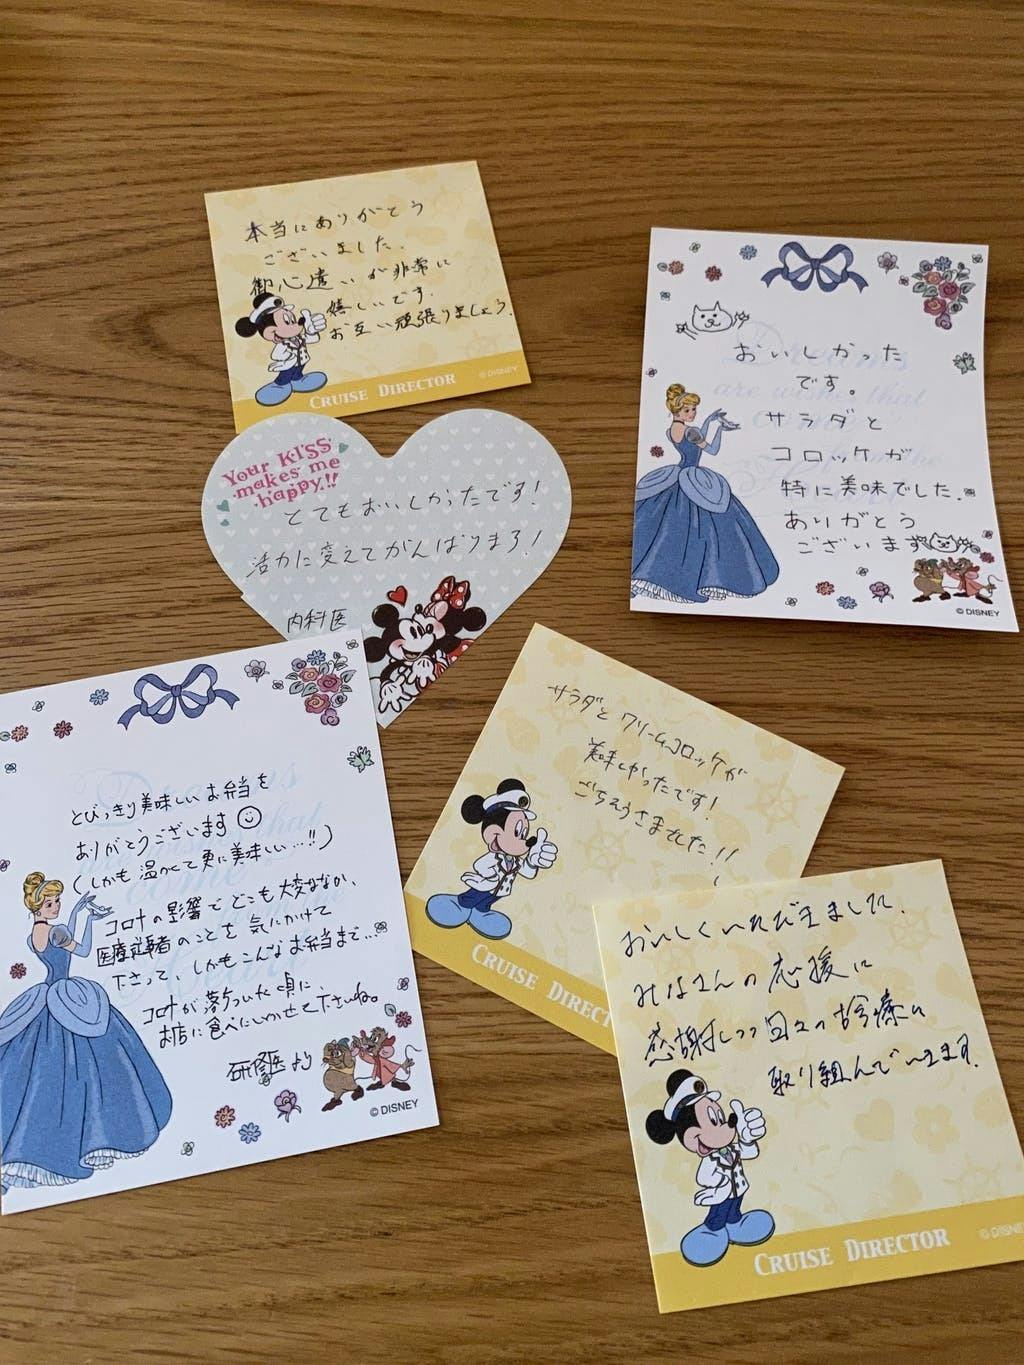 本当にありがとう
ございました.
御心遣いが非常に
嬉しいです.
お互い頑張りましょう.
CRUISE DIRECTOR
© DISNEY
おいしかった
です。
サラダと
コロッケが
特に美味でした.
ありがとう
ございます
© DISNEY
Your KISS
makes me
happy!!
とてもおいしかったです!
活力に変えてがんばりまする!
内科医
とびっきり美味しいお弁当を
ありがとうございます
(しかも温かくて更に美味しい…!!)
コロナの影響でどこも大変ななか、
医療従事者のことを気にかけて
下さって、しかもこんなお弁当まで…
コロナが落ちついた頃に、
お店に食べにいかせて下さいね。
研修医より
© DISNEY
サラダとクリームコロッケが
美味しかったです!
ごちそうさまでした!!
CRUISE DIRECTO
おいしくいただきました.
みなさんの応援に
感謝しつつ日々の診療に
取り組んでいます.
CRUISE DIRECTOR
© DISNE